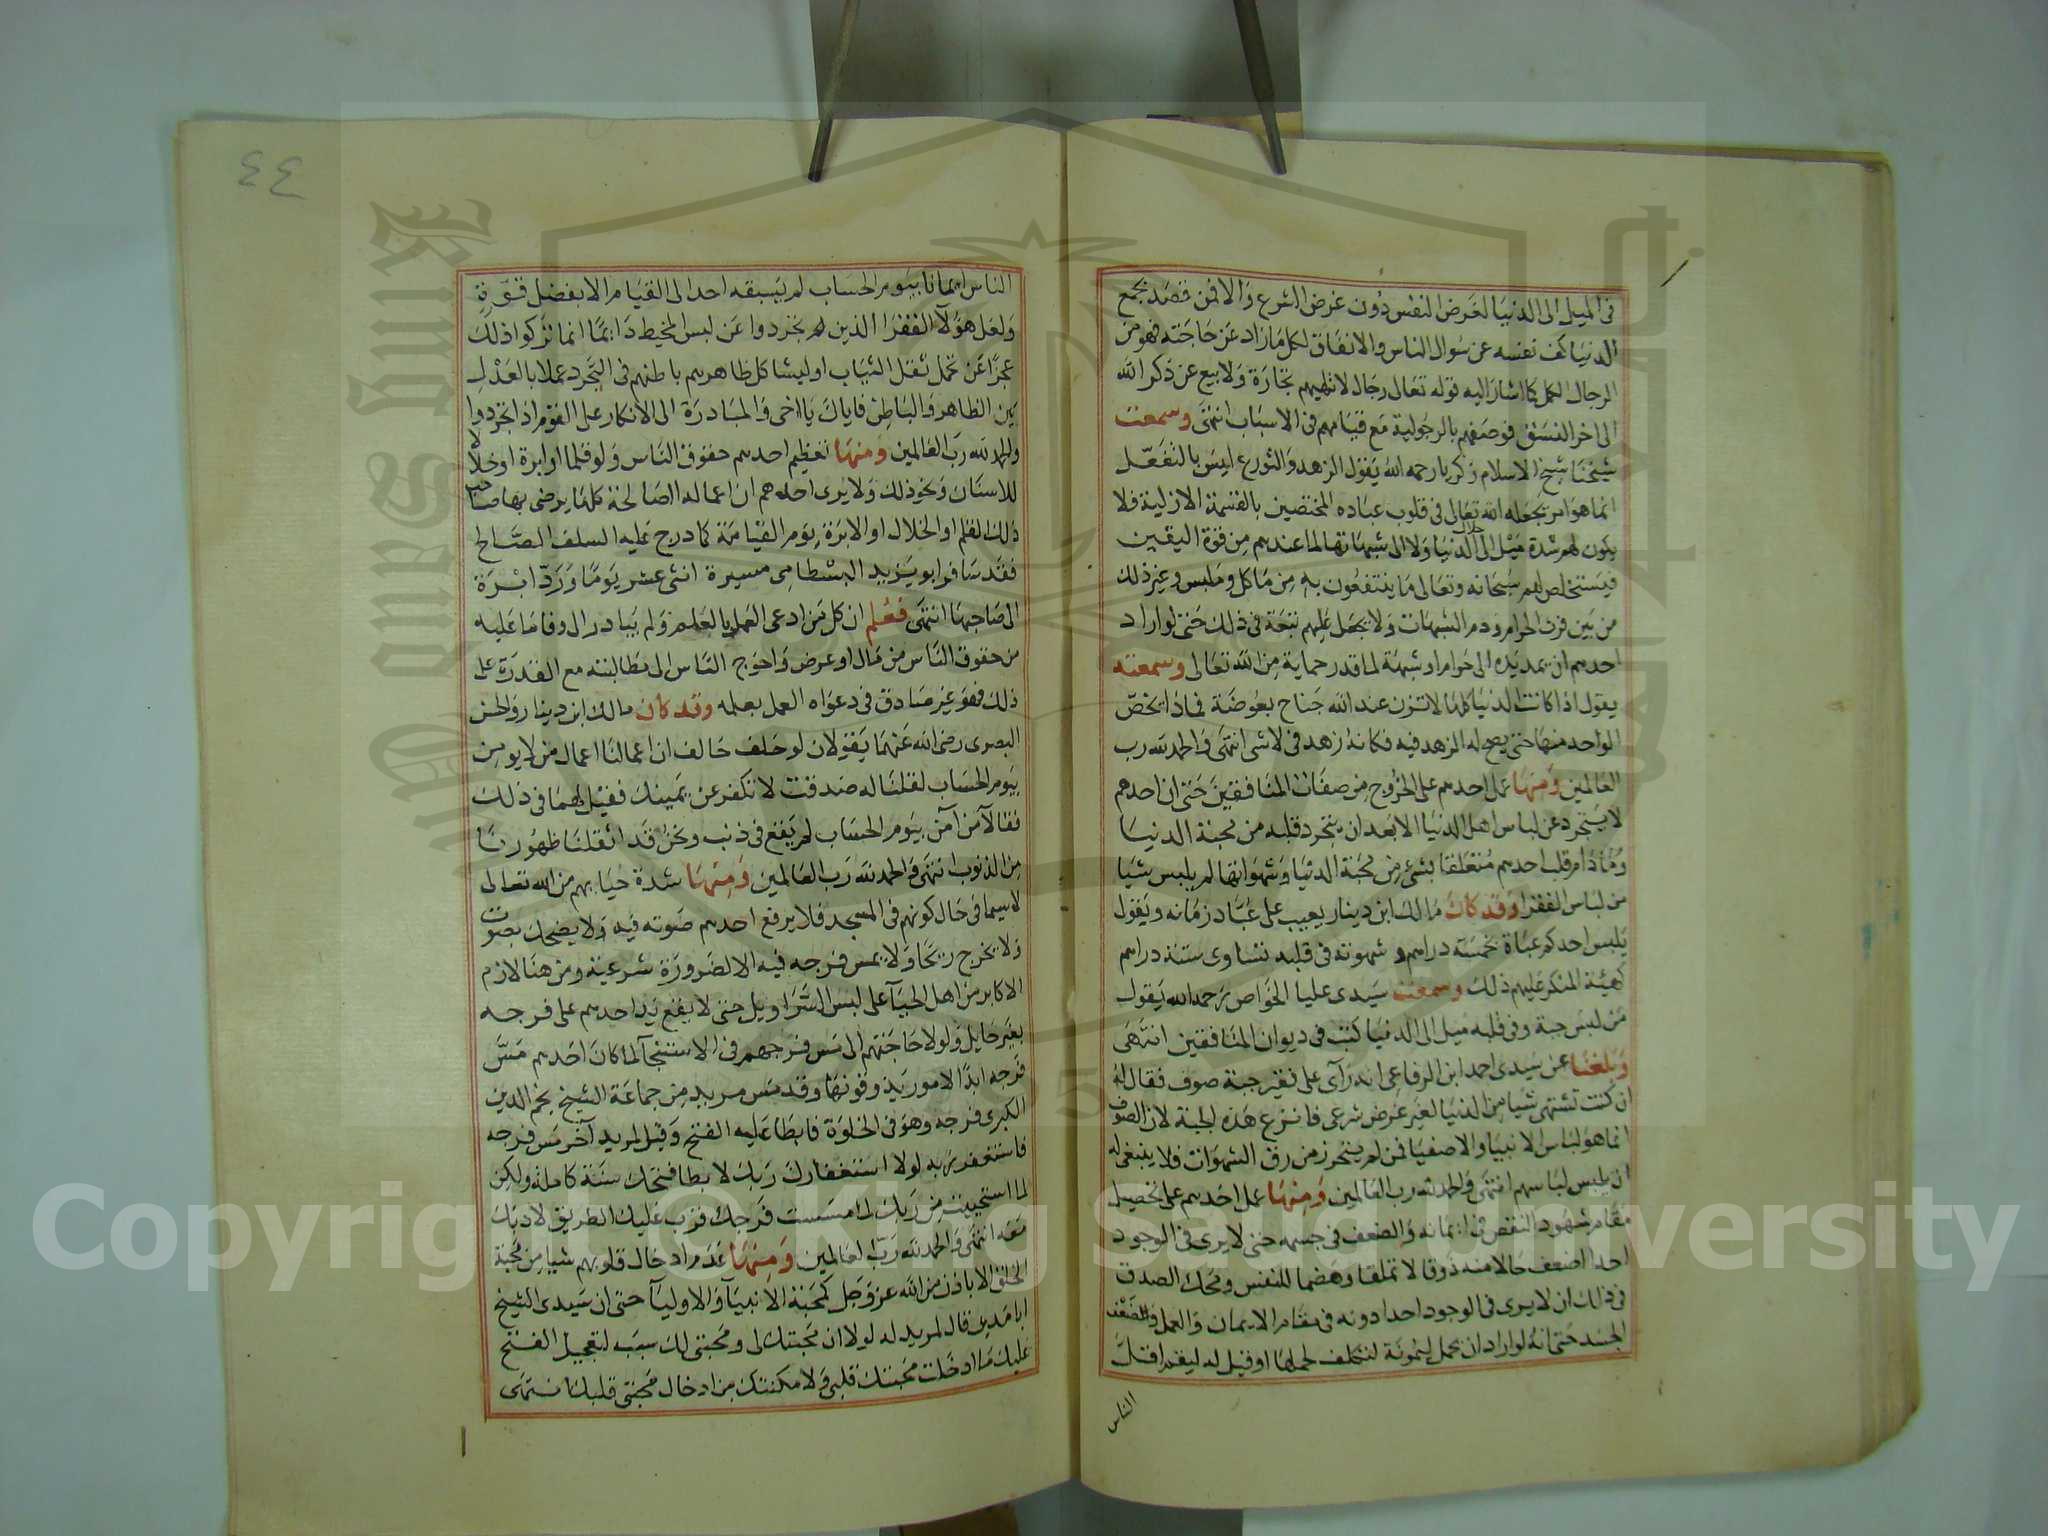 في الميل الى الدنيا لغرض النفس دون غرض الشرع والا فمن قصد بجمع
الدنيا كف نفسه عن سوال الناس والانفاق لكل ما زاد عن حاجته فهو من
الرجال الكمل كما اشار اليه قوله تعالى رجال لا تلهيهم تجارة ولا بيع عن ذكر الله
الى اخر النسق فوصفهم بالرجولية مع قيامهم في الاسباب انتهى وسمعت
شيخنا شيخ الاسلام زكريا رحمه الله يقول الزهد والتورع ليس بالتفعل
انما هو امر يجعله الله تعالى في قلوب عباده المختصين بالقسمة الازلية فلا
يكون لهم شدة ميل الى حلال الدنيا ولا الى شبهاتها لما عندهم من قوة اليقين
فيستخلص لهم سبحانه وتعالى ما ينتفعون به من ماكل وملبس وغير ذلك
من بين فرث الحرام ودم الشبهات ولا يجعل عليهم تبعة في ذلك حتى لو اراد
احدهم ان يمد يده الى حرام او شبهة لما قدر حماية من الله تعالى وسمعته
يقول اذا كانت الدنيا كلها لا تزن عند الله جناح بعوضة فماذا يخص
الواحد منها حتى يصح له الزهد فيه فكانه زهد في لاشي انتهى والحمد لله رب
العالمين ومنها عمل احدهم على الخروج من صفات المنافقين حتى ان احدهم
لا يتجرد عن لباس اهل الدنيا الا بعد ان يتجرد قلبه من محبة الدنيا
وما دام قلب احدهم متعلقا بشئ من محبة الدنيا وشهواتها لم يلبس شيا
من لباس الفقرا وقد كان مالك ابن دينار يعيب على عباد زمانه ويقول
يلبس احدكم عباة بخمسة دراهم وشهوته في قلبه تساوى ستة دراهم
كهيئة المنكر عليهم ذلك وسمعت سيدى عليا الخواص رحمه الله يقول
من لبس جبة وفي قلبه ميل الى الدنيا كتب في ديوان المنافقين انتهى
وبلغنا عن سيدى احمد ابن الرفاعي انه رآى على فقير جبة صوف فقال له
ان كنت تشتهى شيا من الدنيا لغير غرض شرعي فانزع هذه الجبة لان الصوف
انما هو لباس الانبيا والاصفيا فمن لم يتحرز من رق الشهوات فلا ينبغي له
ان يلبس لباسهم انتهى والحمد لله رب العالمين ومنها عمل احدهم على تحصيل
مقام شهود النقص في ايمانه والضعف في جسمه حتى لا يرى في الوجود
احدا اضعف حالا منه ذوقا لا تملقا وهضما للنفس ومحك الصدق
في ذلك ان لا يرى في الوجود احدا دونه في مقام الايمان والعمل والضعف
الجسد حتى انه لو اراد ان يحمل ليمونة لتكلف لحملها او قيل له ليقم اقل
الناس
٤٤
الناس ايمانا بيوم الحساب لم يسبقه احد الى القيام الا بفضل قوة
ولعل هؤلآ الفقرا الذين تجردوا عن لبس المخيط دايما انما تركوا ذلك
عجزا عن تحمل ثقل الثياب او ليشاكل ظاهرهم باطنهم في التجرد عملا بالعدل
بين الظاهر والباطن فاياك يا اخي والمبادرة الى الانكار على القوم اذا تجردوا
والحمد لله رب العالمين ومنها تعظيم احدهم حقوق الناس ولو قلما او ابرة او خلالا
للاسنان ونحو ذلك ولا يرى احدهم ان اعماله الصالحة كلها يرضى بها صاحب
ذلك القلم او الخلال او الابرة يوم القيامة كما درج عليه السلف الصالح
فقد سافر ابو يزيد البسطامي مسيرة اثنى عشر يوما ورد ابرة
الى صاحبها انتهى فعلم ان كل من ادعى العمل بالعلم ولم يبادر الى وفا ما عليه
من حقوق الناس من مال او عرض واحوج الناس الى مطالبته مع القدرة على
ذلك فهو غير صادق في دعواه العمل بعلمه وقد كان مالك ابن دينار والحسن
البصرى رضى الله عنهما يقولان لو حلف حالف ان اعمالنا اعمال من لا يومن
بيوم الحساب لقلنا له صدقت لا تكفر عن يمينك فقيل لهما في ذلك
فقالا من آمن بيوم الحساب لم يقع في ذنب ونحن قد اثقلنا ظهورنا
من الذنوب انتهى والحمد لله رب العالمين ومنها شدة حيايهم من الله تعالى
لاسيما في حال كونهم في المسجد فلا يرفع احدهم صوته فيه ولا يضحك بصوت
ولا يخرج ريحا ولا يمس فرجه فيه الا لضرورة شرعية ومن هنا لازم
الاكابر من اهل الحيآ على لبس السراويل حتى لا يقع يد احدهم على فرجه
بغير حايل ولولا حاجتهم الى مس فرجهم في الاستنجآ لما كان احدهم مس
فرجه ابدا لامور يذوقونها وقد مس مريد من جماعة الشيخ نجم الدين
الكبرى فرجه وهو في الخلوة فابطا عليه الفتح وقيل لمريد آخر مس فرجه
فاستغفر ربه لولا استغفارك ربك لابطا فتحك سنة كاملة ولكن
لما استحييت من ربك لما مسست فرجك قرب عليك الطريق لادبك
معه انتهى والحمد لله رب العالمين ومنها عدم ادخال قلوبهم شيا من محبة
الخلق الا باذن من الله عز وجل كمحبة الانبيآ والاوليآ حتى ان سيدى الشيخ
ابا مدين قال لمريد له لولا ان محبتك لى ومحبتى لك سبب لتعجيل الفتح
عليك ما ادخلت محبتك قلبي ولا مكنتك من ادخال محبتى قلبك انتهى
Copyright © King Saud University